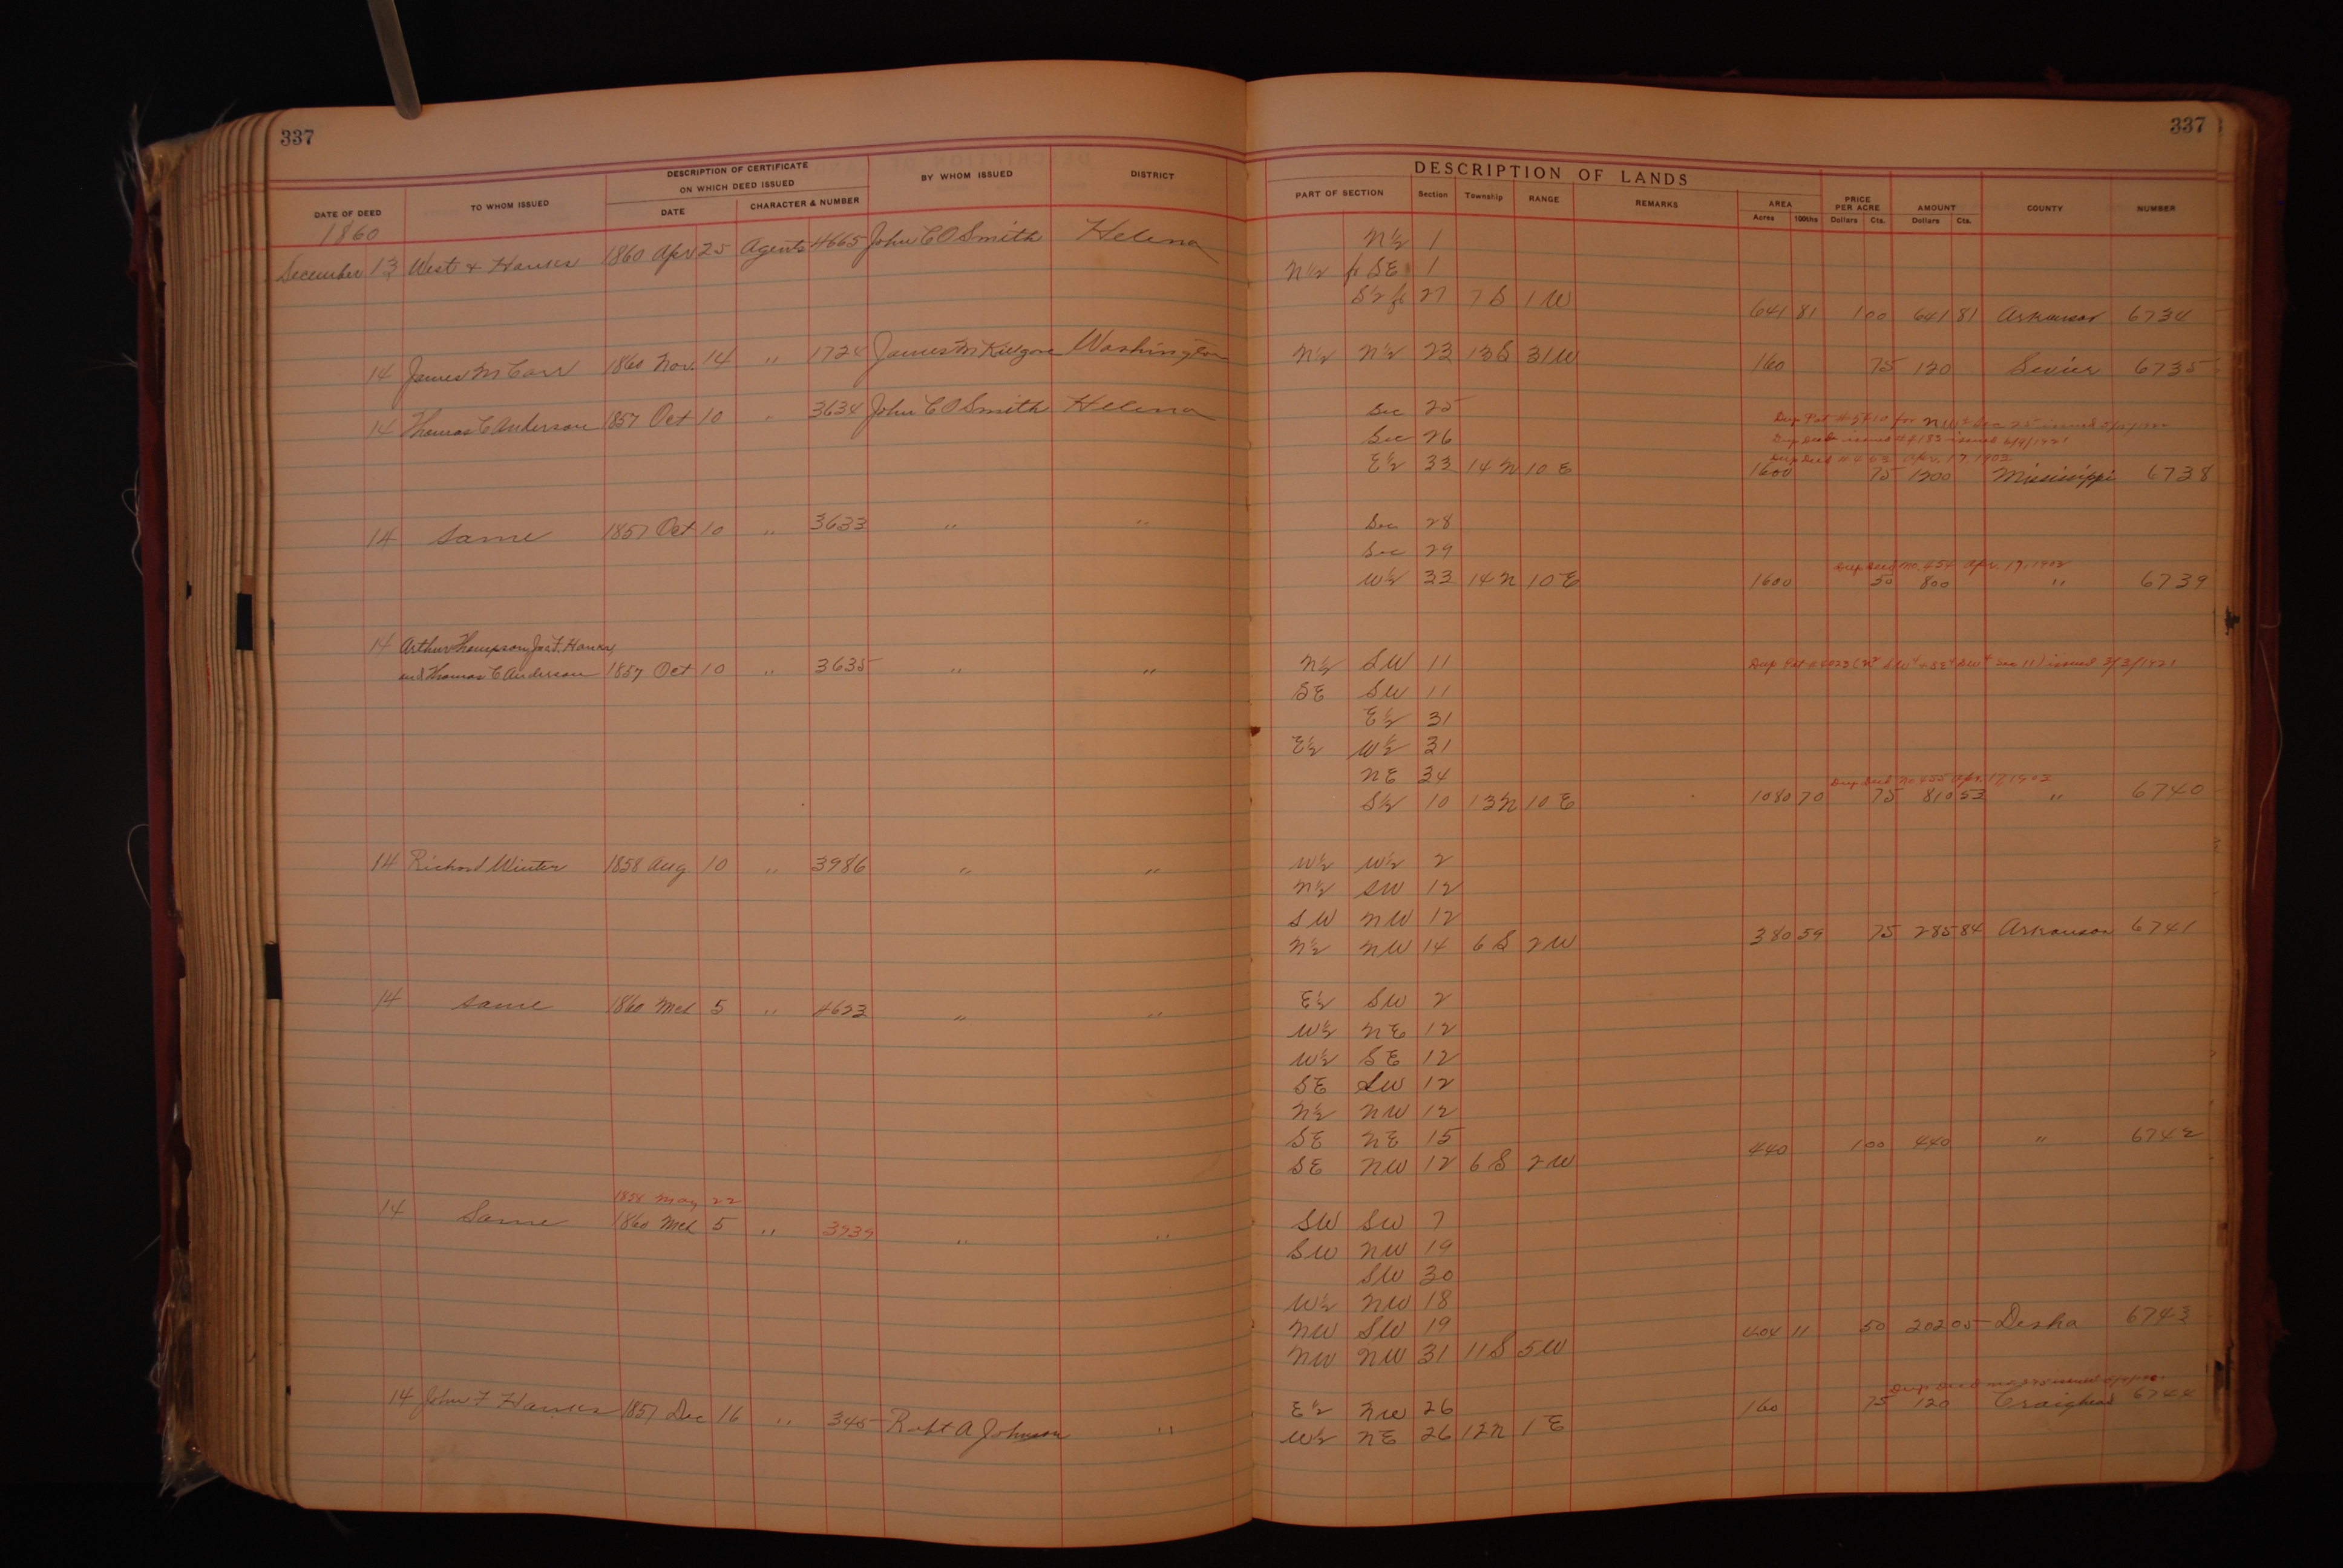 337 337
DESCRIPTION OF CERTIFICATE ON WHICH DEED ISSUED
DESCRIPTION OF LANDS
DATE OF DEED TO WHOM ISSUED DATE CHARACTER & NUMBER BY WHOM ISSUED DISTRICT PART OF SECTION Section Township RANGE REMARKS AREA Acres 100ths PRICE PER ACRE Dollars Cts. AMOUNT Dollars Cts. COUNTY NUMBER
1860
December 13 West & Hanks 1860 Apr 25 Agents 4665 John C O Smith Helena N½ 1
N½ fr SE 1
S½ fr 27 7 S 1 W 641 81 100 641 81 Arkansas 6734
14 James M Carr 1860 Nov. 14 " 1724 James M Kilgore Washington N½ N½ 23 13 S 31 W 160 75 120 Sevier 6735
14 Thomas C Anderson 1857 Oct 10 " 3634 John C O Smith Helena Sec 25
Sec 26
Dup Deed Apr. 17, 1902
E½ 33 14 N 10 E 1600 75 1200 Mississippi 6738
14 Same 1857 Oct 10 " 3633 " " Sec 28
Sec 29
Dup Deed No. 454 Apr. 17, 1902
W½ 33 14 N 10 E 1600 50 800 " 6739
14 Arthur Thompson, Jas. F. Hanks,
and Thomas C Anderson 1857 Oct 10 " 3635 " " N½ SW 11 Dup Pat issued 3/3/1921
SE SW 11
E½ 31
E½ W½ 31
NE 34
Dup Deed No 455 Apr. 17, 1902
S½ 10 13 N 10 E 1080 70 75 810 53 " 6740
14 Richard Winter 1858 Aug 10 " 3986 " " W½ W½ 2
N½ SW 12
SW NW 12
N½ NW 14 6 S 2 W 380 59 75 285 84 Arkansas 6741
14 Same 1860 Mch 5 " 4623 " " E½ SW 2
W½ NE 12
W½ SE 12
SE SW 12
N½ NW 12
SE NE 15
SE NW 12 6 S 2 W 440 100 440 " 6742
1858 May 22
14 Same 1860 Mch 5 " 3939 " " SW SW 7
SW NW 19
SW 30
W½ NW 18
NW SW 19
NW NW 31 11 S 5 W 404 11 50 202 05 Desha 6743
Dup Deed
14 John F Hanks 1857 Dec 16 " 345 Robt A Johnson " E½ NW 26 160 75 120 Craighead 6744
W½ NE 26 12 N 1 E